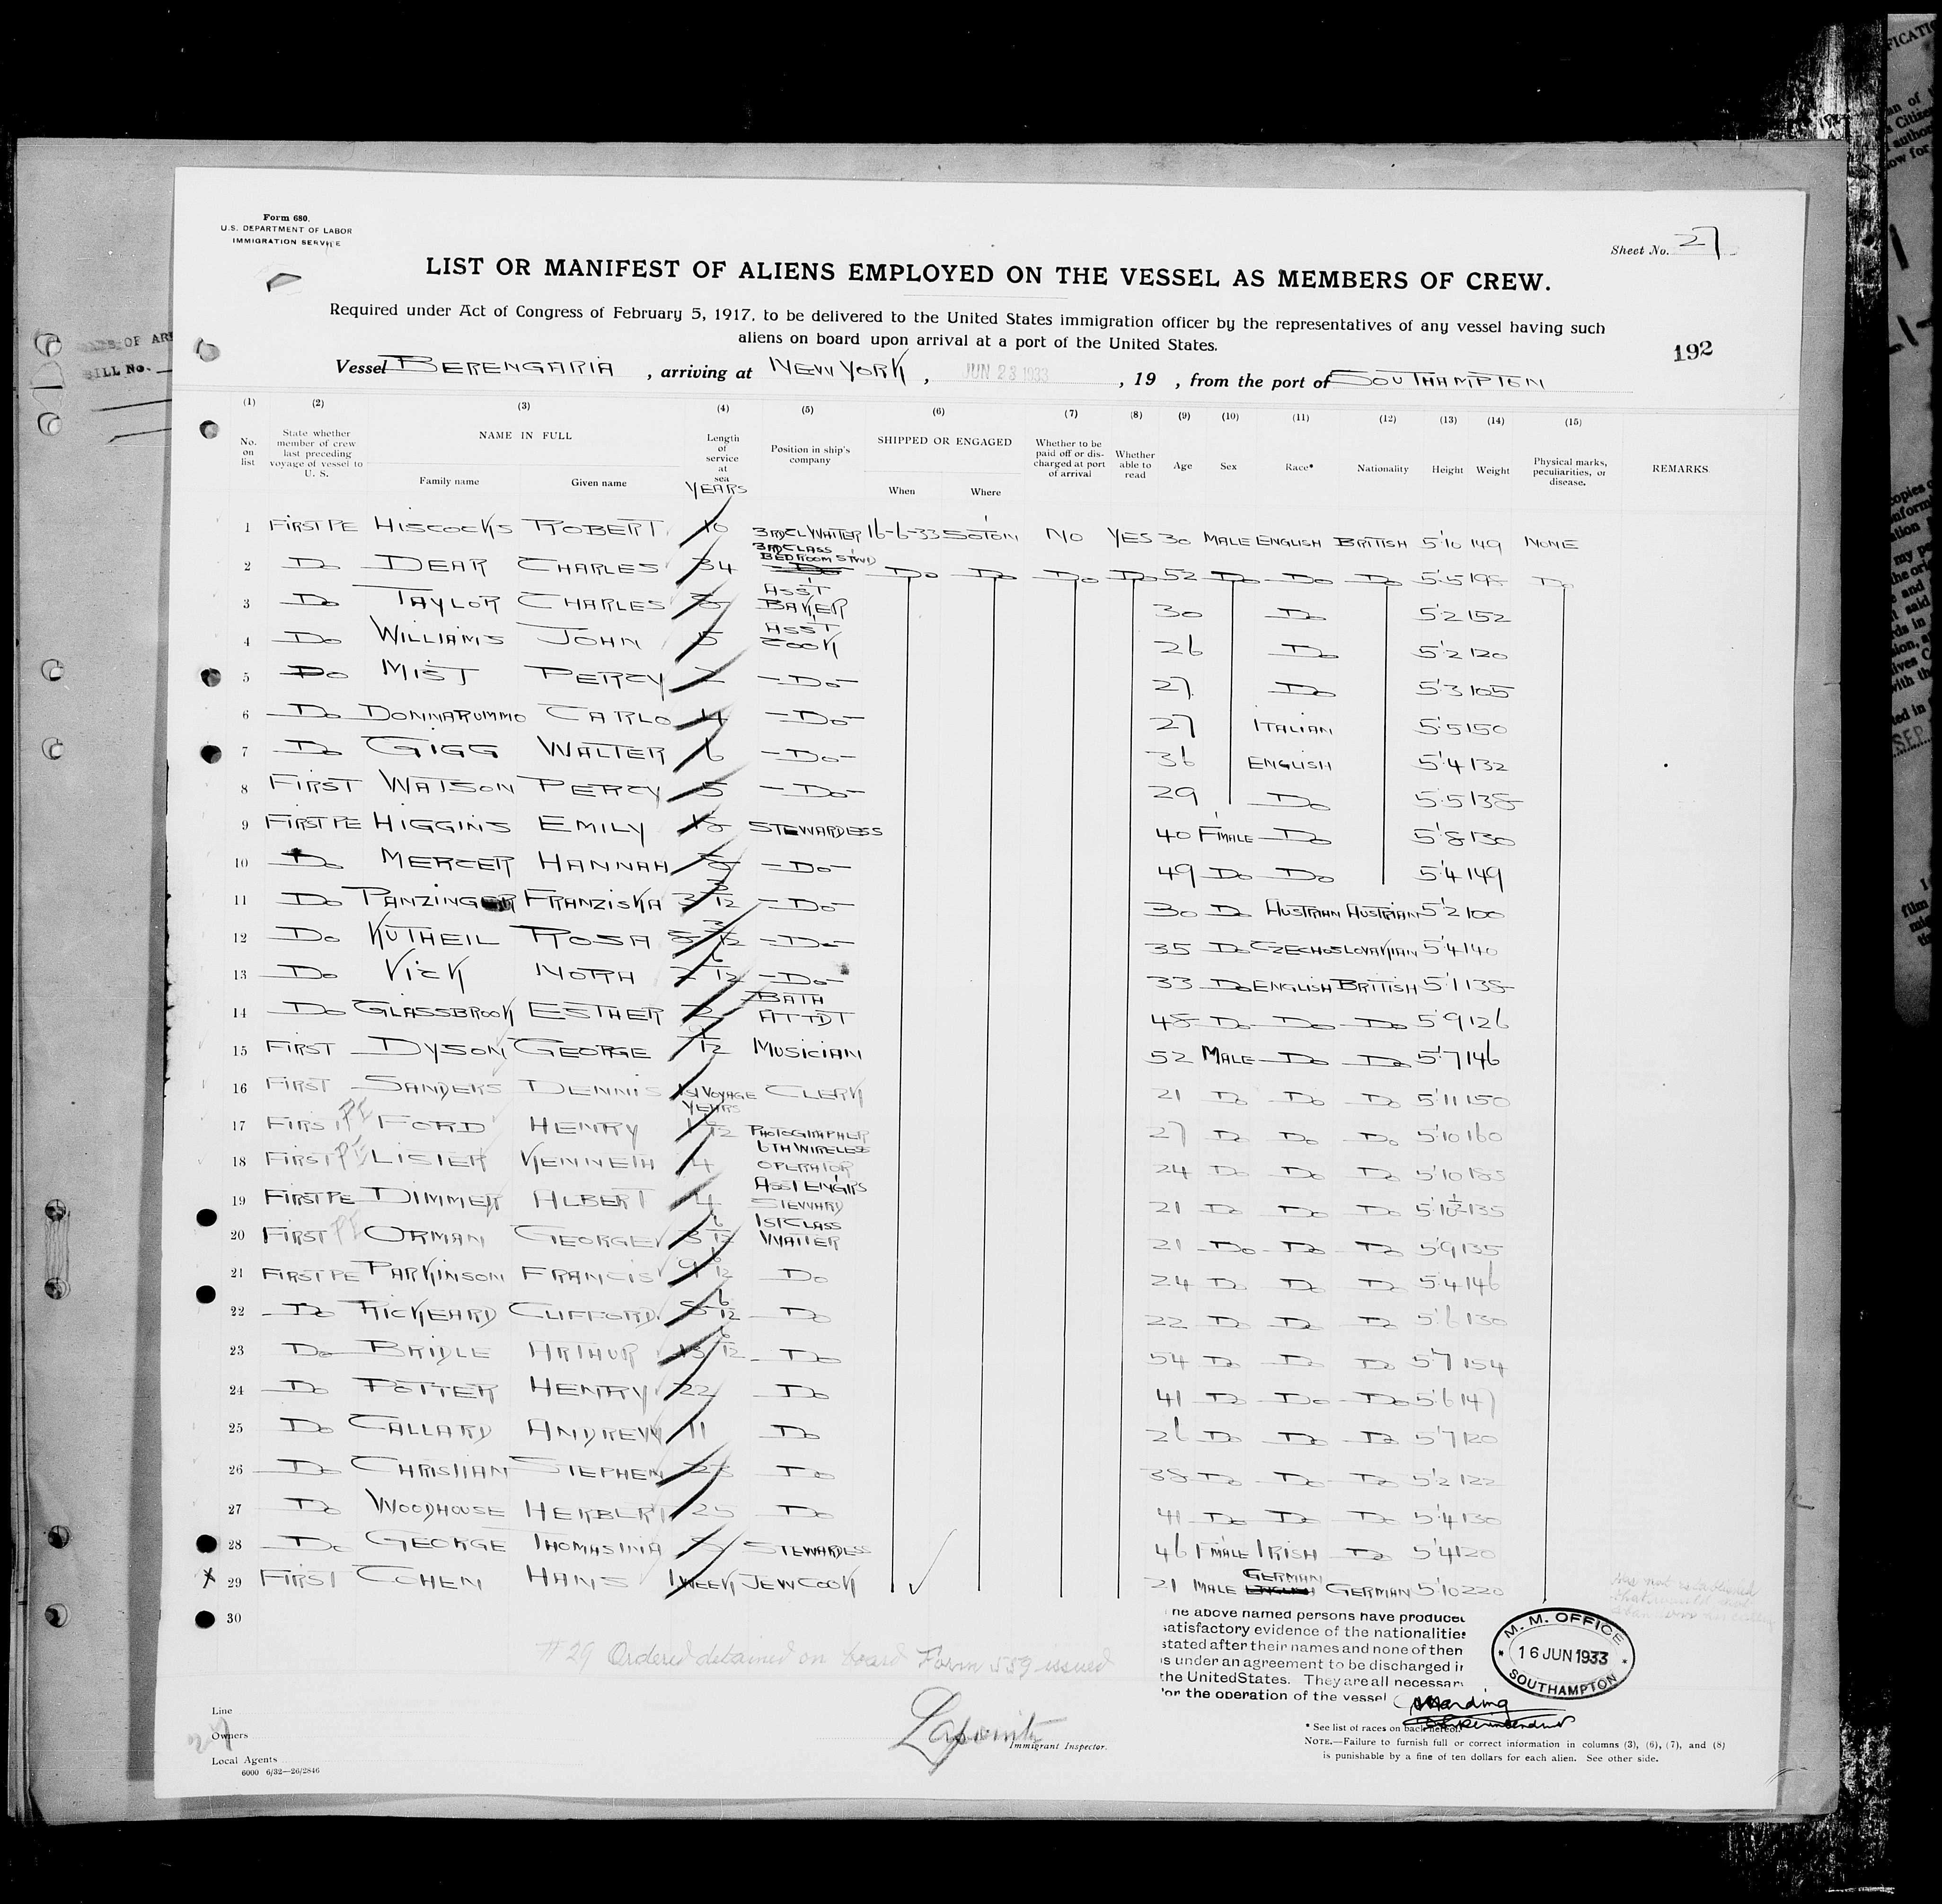 Form 680.
U.S. DEPARTMENT OF LABOR
IMMIGRATION SERVICE
Sheet No. 27
LIST OR MANIFEST OF ALIENS EMPLOYED ON THE VESSEL AS MEMBERS OF CREW.
Required under Act of Congress of February 5, 1917, to be delivered to the United States immigration officer by the representatives of any vessel having such
aliens on board upon arrival at a port of the United States.
192
Vessel BERENGARIA, arriving at NEW YORK, JUN 23 1933, 19 , from the port of SOUTHAMPTON
(1) (2) (3) (4) (5) (6) (7) (8) (9) (10) (11) (12) (13) (14) (15)
No. on list State whether member of crew last preceding voyage of vessel to U. S. NAME IN FULL Family name Given name Length of service at sea YEARS Position in ship's company SHIPPED OR ENGAGED When Where Whether to be paid off or discharged at port of arrival Whether able to read Age Sex Race* Nationality Height Weight Physical marks, peculiarities, or disease. REMARKS
1 FIRST PE HISCOCKS ROBERT 10 3RD CL WAITER 16-6-33 SOTON NO YES 30 MALE ENGLISH BRITISH 5'10 149 NONE
2 Do DEAR CHARLES 34 3RD CLASS BEDROOM STWD Do Do Do Do 52 Do Do Do 5'5 Do
3 Do TAYLOR CHARLES ASST BAKER 30 Do 5'2 152
4 Do WILLIAMS JOHN 5 ASST COOK 26 Do 5'2 120
5 Do MIST PERCY 2 Do 27 Do 5'3 105
6 Do DONNARUMMO CARLO 4 Do 27 ITALIAN 5'5 150
7 Do GIGG WALTER 6 Do 36 ENGLISH 5'4 132
8 FIRST WATSON PERCY 5 Do 29 Do 5'5 138
9 FIRST PE HIGGINS EMILY 18 STEWARDESS 40 F'MALE Do 5'8 130
10 Do MERCER HANNAH Do 49 Do Do 5'4 149
11 Do PANZINGER FRANZISKA 3 3/12 Do 30 Do AUSTRIAN AUSTRIAN 5'2 100
12 Do KUTHEIL ROSA 8 3/12 Do 35 Do CZECHOSLOVAKIAN 5'4 140
13 Do KICK NORTH 2 6/12 Do 33 Do ENGLISH BRITISH 5'1 138
14 Do GLASSBROOK ESTHER 2 BATH ATTDT 48 Do Do Do 5'9 126
15 FIRST DYSON GEORGE /12 MUSICIAN 52 MALE Do Do 5'7 146
16 FIRST SANDERS DENNIS 1ST VOYAGE CLERK 21 Do Do Do 5'11 150
17 FIRST PE FORD HENRY YEARS /12 PHOTOGRAPHER 27 Do Do Do 5'10 160
18 FIRST PE LISTER KENNETH 4 6TH WIRELESS OPERATOR 24 Do Do Do 5'10 185
19 FIRST PE DIMMER ALBERT 4 ASST ENGRS STEWARD 21 Do Do Do 5'10½ 135
20 FIRST PE ORMAN GEORGE 3 6/12 1ST CLASS WAITER 21 Do Do Do 5'9 135
21 FIRST PE PARKINSON FRANCIS 9 6/12 Do 24 Do Do Do 5'4 146
22 Do RICKEARD CLIFFORD 6/12 Do 22 Do Do Do 5'6 130
23 Do BRIDLE ARTHUR 13 6/12 Do 54 Do Do Do 5'7 154
24 Do POTTER HENRY 22 Do 41 Do Do Do 5'6 147
25 Do CALLARD ANDREW 11 Do 26 Do Do Do 5'7 120
26 Do CHRISTIAN STEPHEN 23 Do 38 Do Do Do 5'2 122
27 Do WOODHOUSE HERBERT 25 Do 41 Do Do Do 5'4 130
28 Do GEORGE THOMASINA STEWARDESS 46 F'MALE IRISH Do 5'4 120
X 29 FIRST COHEN HANS 1 WEEK JEW COOK 21 MALE GERMAN ENGLISH GERMAN 5'10 220
Has not established that
30
#29 Ordered detained on board Form 559 issued
The above named persons have produced
satisfactory evidence of the nationalities
stated after their names and none of them
is under an agreement to be discharged in
the United States. They are all necessary
for the operation of the vessel
M. M. OFFICE
16 JUN 1933
SOUTHAMPTON
Harding
Superintendent
Line
Owners
Local Agents
6000 6/32—26/2846
Immigrant Inspector.
* See list of races on back hereof.
NOTE.—Failure to furnish full or correct information in columns (3), (6), (7), and (8)
is punishable by a fine of ten dollars for each alien. See other side.